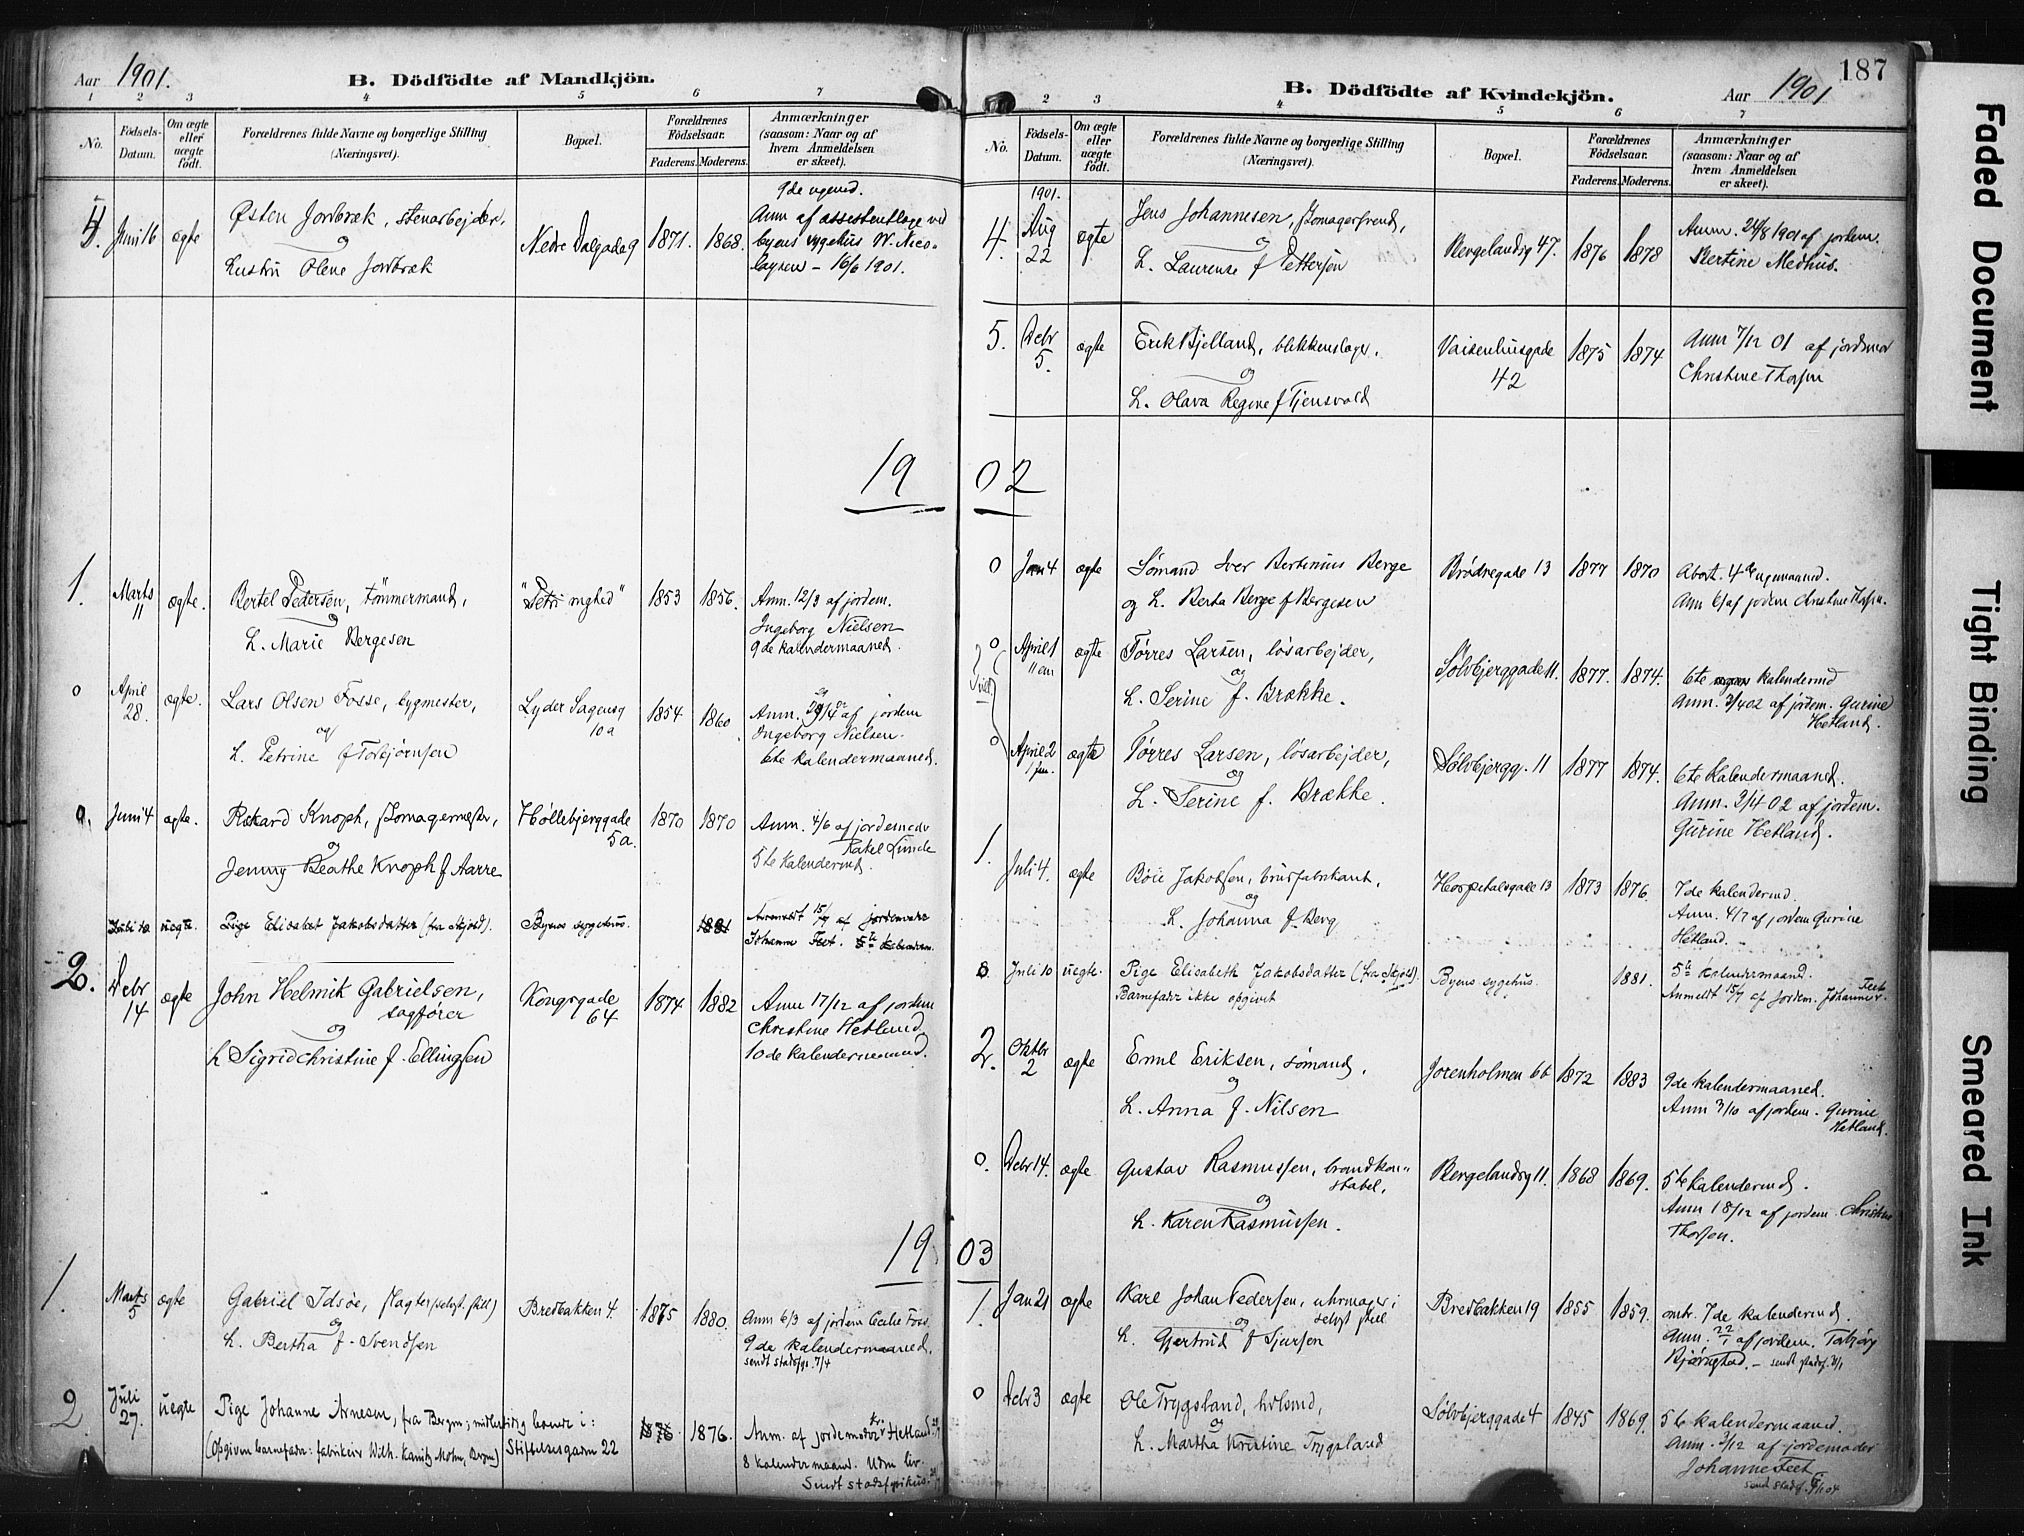 Aar 1901.
B. Dödfödte af Mandkjön.
1 2 3 4 5 6 7
No.
Födsels-Datum.
Om ægte eller uægte födt.
Forældrenes fulde Navne og borgerlige Stilling
(Næringsvei).
Bopæl.
Forældrenes Födselsaar.
Faderens. Moderens.
Anmærkninger
(saasom: Naar og af
hvem Anmeldelsen
er skeet).
4 Juni 16 ægte Østen Jordbræk, stenarbejder.
og
Hustru Olene Jordbræk
Nedre Dalgade 9 1871. 1868.
9de ugemd.
Anm af assistentlæge ved
byens sygehus W. Nico-
laysen – 16/6 1901.
1902
1. Marts 11 ægte. Bertel Pedersen, tømmermand,
og
h. Marie Bergesen
"Petri nyhed" 1853 1856.
Anm. 12/3 af jordem.
Ingeborg Nielsen
9de kalendermaaned.
0 April 28. ægte. Lars Olsen Fosse, bygmester,
og
h. Petrine f Torbjørnsen
Lyder Sagensg 10a 1854 1860.
Anm. 29/4 02 af jordem
Ingeborg Nielsen.
6te kalendermaaned.
0. Juni 4 ægte. Rikard Knoph, skomagermester,
og
Jenny Beathe Knoph f Aarre
Høllebjerggade 5a. 1870 1870
Anm. 4/6 af jordemoder
Rakel Lunde
5te kalendermd.
Juli 10 uegte. Pige Elisabet Jakobsdatter (fra Skjold).
Byens sygehus. 1881
Anmeldt 15/7 af jordemoder
Johanne Feet. 5te kalenderm.
2. Debr 14 ægte John Helmik Gabrielsen,
sagfører
og
h Sigrid Christine f. Ellingsen
Kongsgade 64 1874 1882
Anm 17/12 af jordem
Christine Hetland,
10de kalendermaaned.
1903
1. Marts 5 ægte Gabriel Idsøe, slagter (selvst. still)
og
h. Bertha f. Svendsen
Bredbakken 4. 1875 1880.
Anm 6/3 af jordem Cecilie Foss
9de kalendermaaned.
sendt stadsfys. 7/4
2 Juli 27. uegte Pige Johanne Arnesen, fra Bergen; midlertidig boende i:
(opgiven barnefader: fabrikeier Wilh. Kanitz Mohn, Bergen)
Stiftelsesgaden 22 1876 1876.
Anm. af jordemoder Kr. Hetland
8 kalendermaaned.
Sendt stadsfysikus.
187
B. Dödfödte af Kvindekjön.
Aar 1901
2 3 4 5 6 7
No.
Födsels-Datum.
Om ægte eller uægte födt.
Forældrenes fulde Navne og borgerlige Stilling
(Næringsvei).
Bopæl.
Forældrenes Födselsaar.
Faderens. Moderens.
Anmærkninger
(saasom: Naar og af
hvem Anmeldelsen
er skeet).
1901.
4. Aug 22 ægte Jens Johannesen, skomagersvend,
og
h. Laurense f Pettersen
Bergelandsg 47. 1876 1878
Anm. 24/8 1901 af jordem.
Bertine Medhus.
5. Debr 5. ægte Erik Bjelland, blikkenslager,
og
h. Olava Regine f Tjensvold
Vaisenhusgade 42 1875 1874
Anm 7/12 01 af jordemor
Christine Thorsen
0 Jan 4 ægte Sømand Iver Bertinius Berge
og h. Berta Berge f Bergesen
Brødregade 13 1877 1870
Abort. 4de ugemaaned.
Anm 6/1 af jordem Christine Thorsen.
0 April 1 ægte Tørres Larsen, løsarbejder,
og
h. Serine f. Brække.
Sølvbjerggade 11. 1877. 1874.
6te kalendermd
Anm. 3/4 02 af jordem. Gurine
Hetland.
0 April 2 ægte Tørres Larsen, løsarbejder,
og
h. Serine f. Brække.
Sølvbjergg. 11 1877 1874.
6te kalendermaaned.
Anm. 3/4 02 af jordem.
Gurine Hetland.
1. Juli 4. ægte Bøie Jakobsen, brusfabrikant,
og
h. Johanna f. Berg
Hospitalsgade 13 1873 1876.
7de kalendermd.
Anm. 4/7 af jordem Gurine
Hetland.
0 Juli 10 uegte. Pige Elisabeth Jakobsdatter (fra Skjold).
Barnefader ikke opgivet
Byens sygehus. 1881.
5te kalendermaaned.
Anmeldt 15/7 af jordem. Johanne Feet.
2. Oktbr 2 ægte Emil Eriksen, sømand,
og
h. Anna f. Nilsen
Jorenholmen 6b 1872 1883
9de kalendermaaned.
Anm 3/10 af jordem. Gurine
Hetland.
0. Debr 14. ægte Gustav Rasmussen, brandkon-
stabel,
og
h. Karen Rasmussen.
Bergelandsg 11. 1868 1869.
5te kalendermd.
Anm 18/12 af jordem. Christine
Thorsen.
1. Jan 21 ægte Karl Johan Pedersen, uhrmager i
selvst still
og
h. Gjertrud f Sjursen
Bredbakken 19 1855 1859.
omtr. 7de kalendermd.
Anm. 22/1 af jordem. Torbjørg
Bjørnstad. – sendt stadsf.
0 Debr 3 ægte Ole Trygsland, holsmd,
og
h. Martha Kristine Trygsland
Sølvbjerggade 4 1845 1869.
5te kalendermaaned.
Anm. 3/12 af jordemoder
Johanne Feet
sendt stadsf.
Faded Document
Tight Binding
Smeared Ink